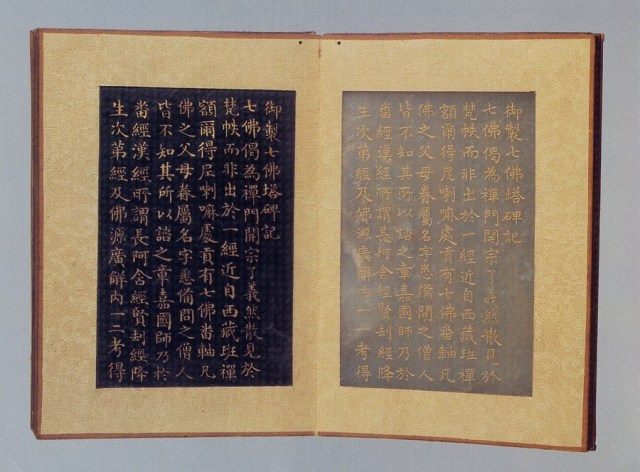 御製七佛塔碑記
七佛偈為禪門開宗了義然散見於
梵帙而非出於一經近自西藏班禪
額爾得尼喇嘛處貢有七佛畨軸凡
佛之父母眷屬名字悉備問之僧人
皆不知其所以諮之章嘉國師乃於
畨經漢經所謂長阿含經賢刼經降
生次第經及佛源廣觧內一一考得
御製七佛塔碑記
七佛偈為禪門開宗了義然散見於
梵帙而非出於一經近自西藏班禪
額爾得尼喇嘛處貢有七佛畨軸凡
佛之父母眷屬名字悉備問之僧人
皆不知其所以諮之章嘉國師乃於
畨經漢經所謂長阿含經賢刼經降
生次第經及佛源廣觧內一一考得